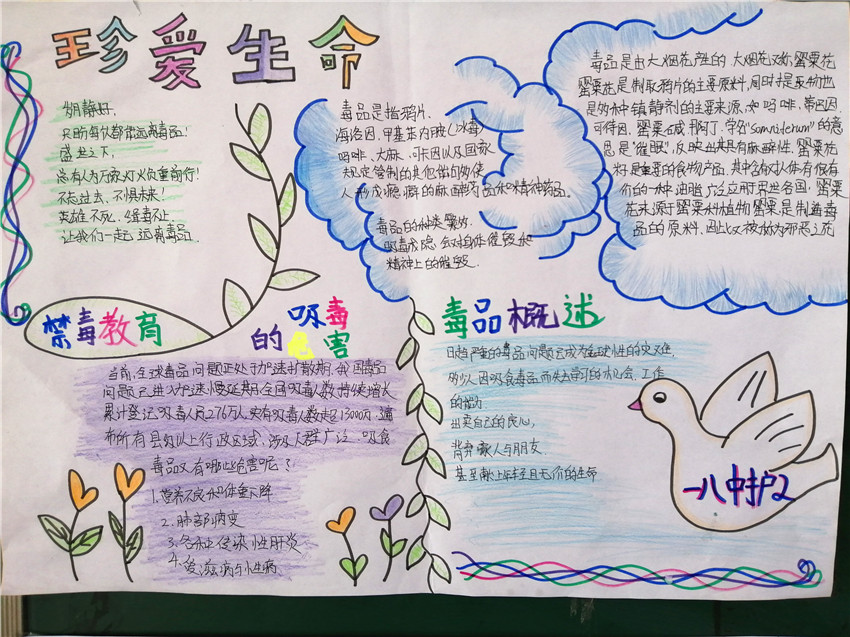 珍爱生命
岁月静好,
只盼每个人都能远离毒品!
盛世之下,
总有人为万家灯火负重前行!
不忘过去,不惧未来!
英雄不死,缉毒不止,
让我们一起远离毒品.
毒品是指鸦片.
海洛因.甲基苯丙胺(冰毒)
吗啡、大麻、可卡因以及国家
规定管制的其他能够使
人形成瘾癖的麻醉药品和精神药品.
毒品的种类繁多.
吸毒成瘾会对身体催毁和
精神上的催毁.
毒品是由大烟花产生的大烟花又称罂粟花
罂粟花是制取鸦片的主要原料,同时提取物也
是多种镇静剂的主要来源,如吗啡,蒂巴因.
可待因、罂粟碱那可丁.学名"somniferum"的意
思是"催眠",反映出其具有麻醉性.罂粟花
籽是重要的食物产品,其中含有对人体有很有
价的一种油脂广泛应用于世界各国.罂粟
花来源于罂粟科植物罂粟是制造毒
品的原料.因此又被称为邪恶之花
禁毒教育
吸毒
的危害
毒品概述
当前,全球毒品问题正处于加速扩散期.我国毒品
问题已进入加速慢延期,全国吸毒人数持续增长
累计登记吸毒人员276万人,实有吸毒人数超13000万.遍
布所有县级以上行政区域、涉及人群广泛、吸食
毒品又有哪些危害呢?
1.营养不良和体重下降
2.肺部病变
3.各种传染性肝炎
4.爱滋病与性病.
日趋严重的毒品问题已成为全球性的灾难,
多少人因吸食毒品而失去学习的机会,工作
的能力.
出卖自己的良心,
背弃家人与朋友.
甚至献上年轻且无价的生命
一八中护2